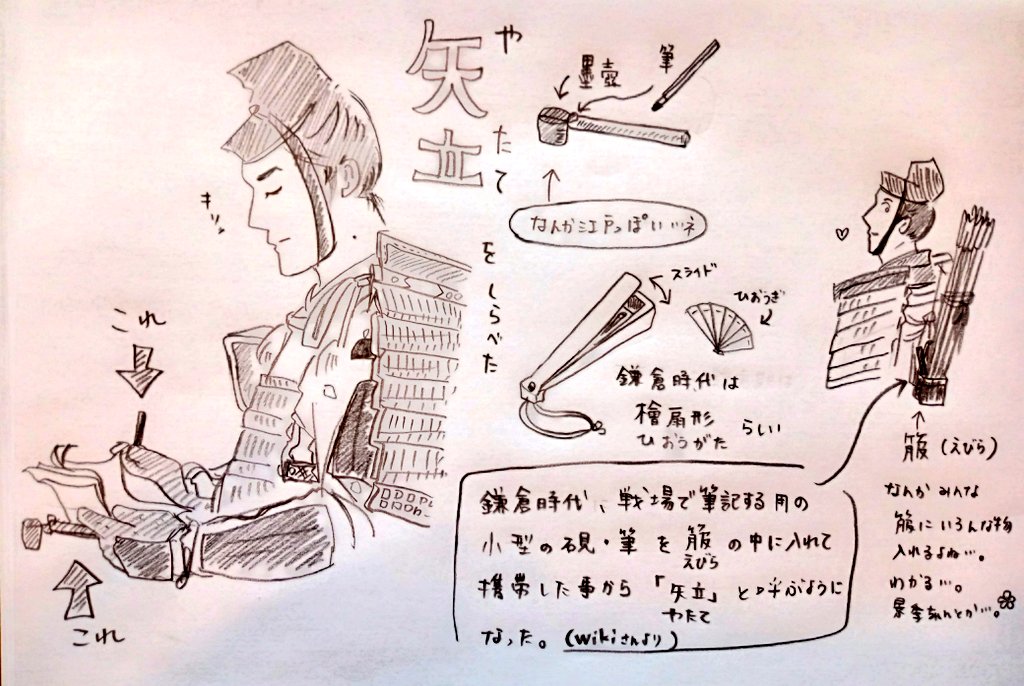 矢立
やたて
をしらべた
墨壺
筆
なんか江戸っぽい…ネ
キリッ
これ
これ
スライド
ひおうぎ
鎌倉時代は
檜扇形 らしい
ひおうがた
鎌倉時代、戦場で筆記する用の
小型の硯・筆を箙の中に入れて
えびら
携帯した事から「矢立」と呼ぶように
やたて
なった。(wikiさんより)
箙(えびら)
なんかみんな
箙にいろんな物
入れるよね…。
わかる…。
景季ちゃんとか…。